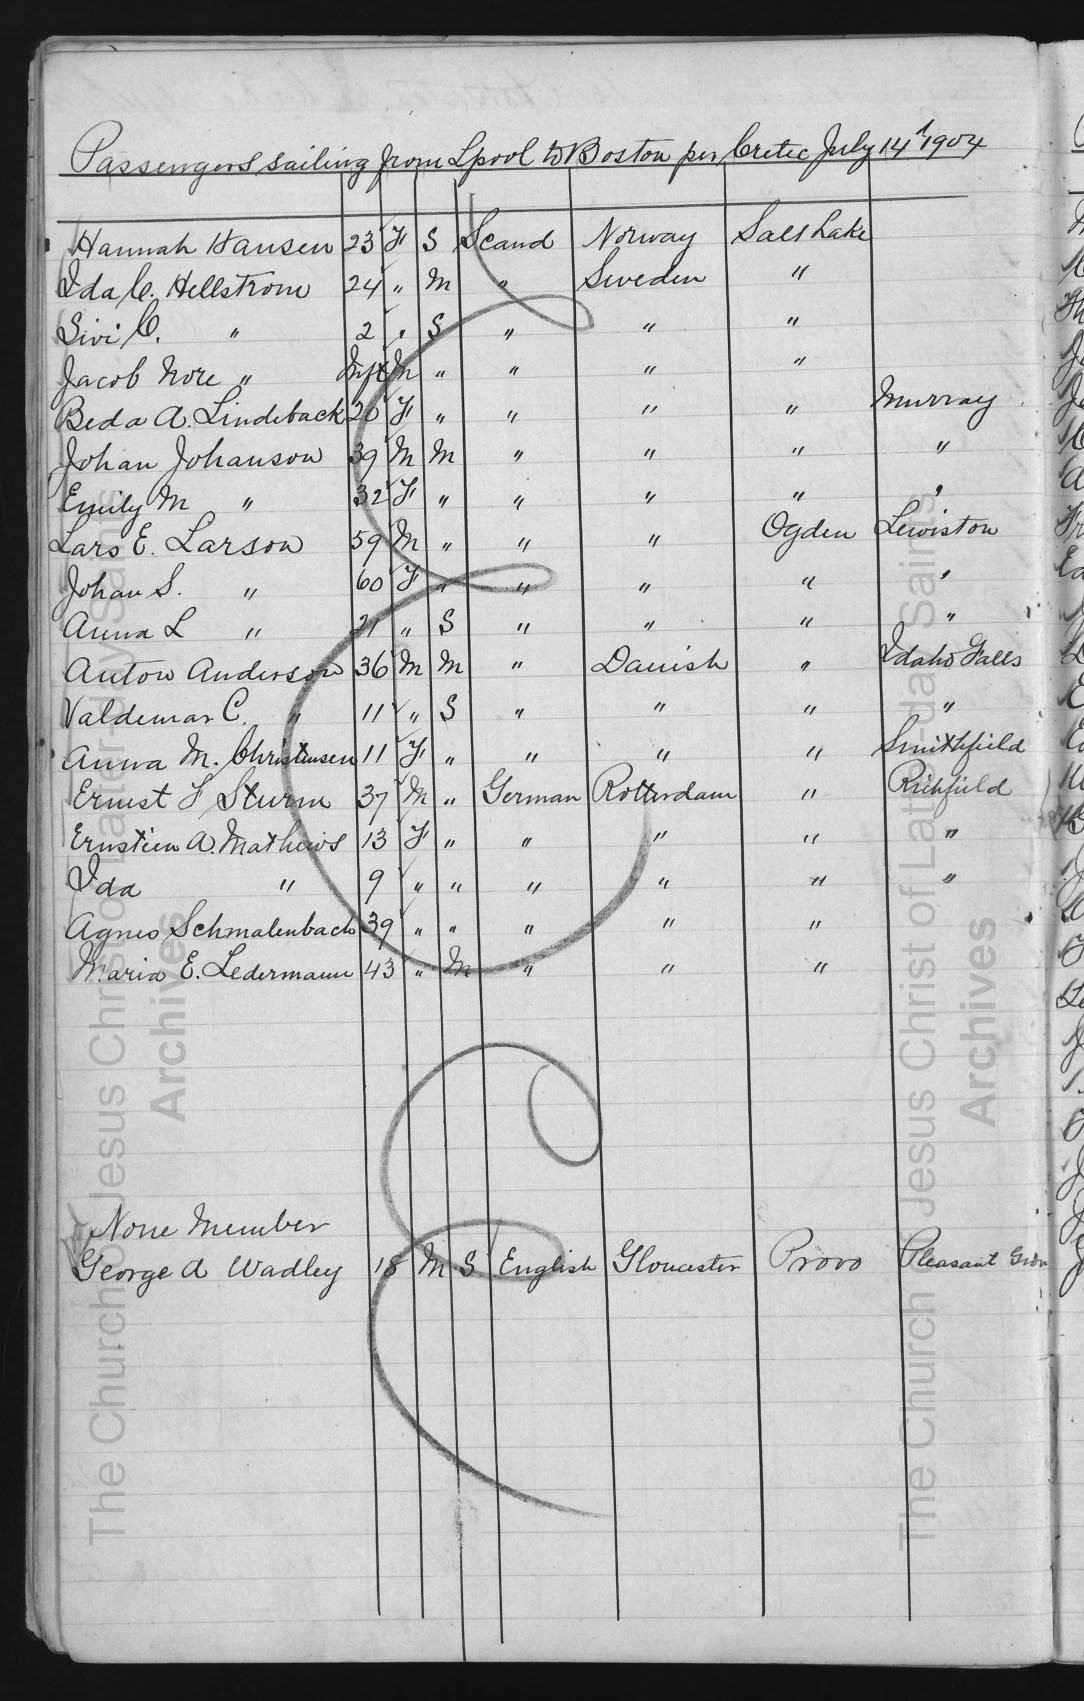 Passengers sailing from Lpool to Boston per Cretic July 14th 1904
Hannah Hansen 23 F S Scand Norway Salt Lake
Ida C. Hellstrom 24 " M " Sweden "
Sivi C. " 2 " S " " "
Jacob Nore " Inft M " " " "
Beda A. Lindeback 26 F " " " " Murray
Johan Johanson 39 M M " " " "
Emily M " 32 F " " " " "
Lars E. Larson 59 M " " " Ogden Lewiston
Johan S. " 60 F " " " " "
Anna L " 21 " S " " " "
Anton Anderson 36 M M " Danish " Idaho Falls
Valdemar C. " 11 " S " " " "
Anna M. Christensen 11 F " " " " Smithfield
Ernest F Sturm 37 M " German Rotterdam " Richfield
Ernstien A. Mathews 13 F " " " " "
Ida " 9 " " " " " "
Agnes Schmalenbach 39 " " " " "
Maria E. Ledermann 43 " M " " "
None Member
George A Wadley 18 M S English Gloucester Provo Pleasant Grov
The Church of Jesus Christ of Latter-day Saints
Archives
The Church of Jesus Christ of Latter-day Saints
Archives